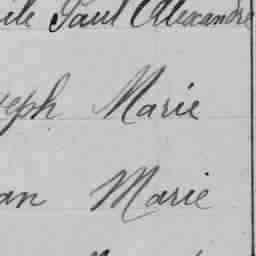 ile Paul Alexandre
seph Marie
an Marie